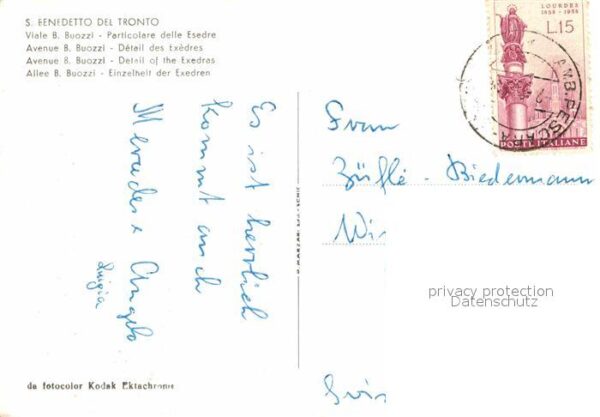 S. BENEDETTO DEL TRONTO
Viale B. Buozzi - Particolare delle Esedre
Avenue B. Buozzi - Détail des Exèdres
Avenue B. Buozzi - Detail of the Exedras
Allee B. Buozzi - Einzelheit der Exedren
Es ist herrlich
kommt auch
Mercedes e Angelo
Luigia
da fotocolor Kodak Ektachrome
LOURDES
1858 - 1958
L.15
POSTE ITALIANE
AMB. PESCARA
Frau
Züflé - Biedermann
Wi
privacy protection
Datenschutz